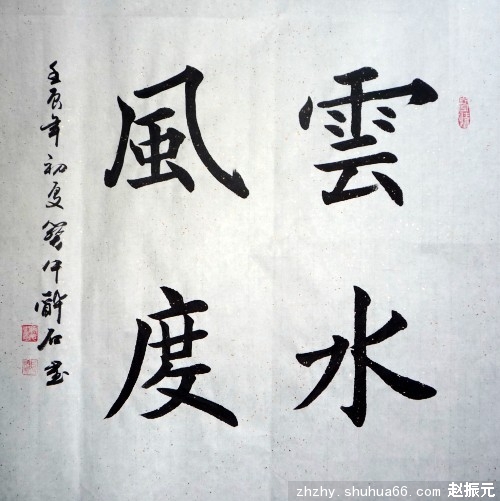 雲水
風度
壬辰年初夏
石
zhzhy.shuhua66.com 赵振元